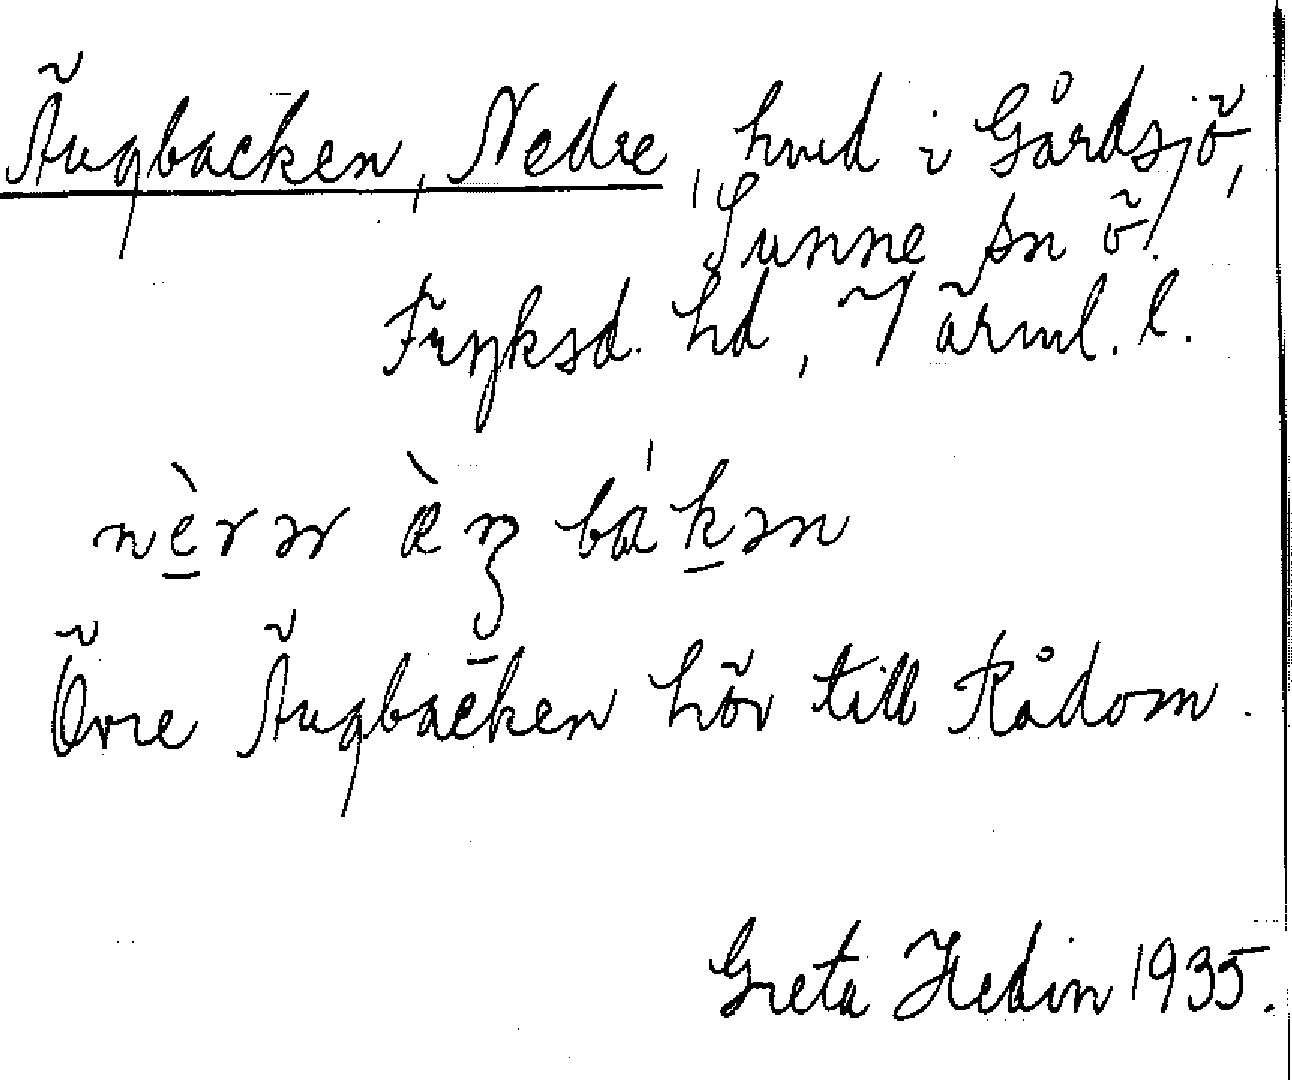 Ängbacken, Nedre, hmd i Gårdsjö,
Sunne sn ö.
Fryksd. hd, Värml. l.
nèrər æ̀ŋbákən
Övre Ängbacken hör till Rådom.
Greta Hedin 1935.